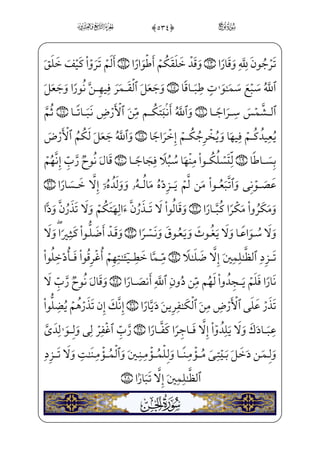 ﴿٥٣٤﴾
تَرْجُونَ لِلَّهِ وَقَارًا ۝ وَقَدْ خَلَقَكُمْ أَطْوَارًا ۝ أَلَمْ تَرَوْا۟ كَيْفَ خَلَقَ
ٱللَّهُ سَبْعَ سَمَٰوَٰتٍ طِبَاقًا ۝ وَجَعَلَ ٱلْقَمَرَ فِيهِنَّ نُورًا وَجَعَلَ
ٱلشَّمْسَ سِرَاجًا ۝ وَٱللَّهُ أَنۢبَتَكُم مِّنَ ٱلْأَرْضِ نَبَاتًا ۝ ثُمَّ
يُعِيدُكُمْ فِيهَا وَيُخْرِجُكُمْ إِخْرَاجًا ۝ وَٱللَّهُ جَعَلَ لَكُمُ ٱلْأَرْضَ
بِسَاطًا ۝ لِّتَسْلُكُوا۟ مِنْهَا سُبُلًا فِجَاجًا ۝ قَالَ نُوحٌ رَّبِّ إِنَّهُمْ
عَصَوْنِى وَٱتَّبَعُوا۟ مَن لَّمْ يَزِدْهُ مَالُهُۥ وَوَلَدُهُۥٓ إِلَّا خَسَارًا ۝
وَمَكَرُوا۟ مَكْرًا كُبَّارًا ۝ وَقَالُوا۟ لَا تَذَرُنَّ ءَالِهَتَكُمْ وَلَا تَذَرُنَّ وَدًّا
وَلَا سُوَاعًا وَلَا يَغُوثَ وَيَعُوقَ وَنَسْرًا ۝ وَقَدْ أَضَلُّوا۟ كَثِيرًا وَلَا
تَزِدِ ٱلظَّٰلِمِينَ إِلَّا ضَلَٰلًا ۝ مِّمَّا خَطِيٓـَٰٔتِهِمْ أُغْرِقُوا۟ فَأُدْخِلُوا۟
نَارًا فَلَمْ يَجِدُوا۟ لَهُم مِّن دُونِ ٱللَّهِ أَنصَارًا ۝ وَقَالَ نُوحٌ رَّبِّ لَا
تَذَرْ عَلَى ٱلْأَرْضِ مِنَ ٱلْكَٰفِرِينَ دَيَّارًا ۝ إِنَّكَ إِن تَذَرْهُمْ يُضِلُّوا۟
عِبَادَكَ وَلَا يَلِدُوٓا۟ إِلَّا فَاجِرًا كَفَّارًا ۝ رَّبِّ ٱغْفِرْ لِى وَلِوَٰلِدَىَّ
وَلِمَن دَخَلَ بَيْتِىَ مُؤْمِنًا وَلِلْمُؤْمِنِينَ وَٱلْمُؤْمِنَٰتِ وَلَا تَزِدِ
ٱلظَّٰلِمِينَ إِلَّا تَبَارًۢا ۝
سُورَةُ الْجِنِّ